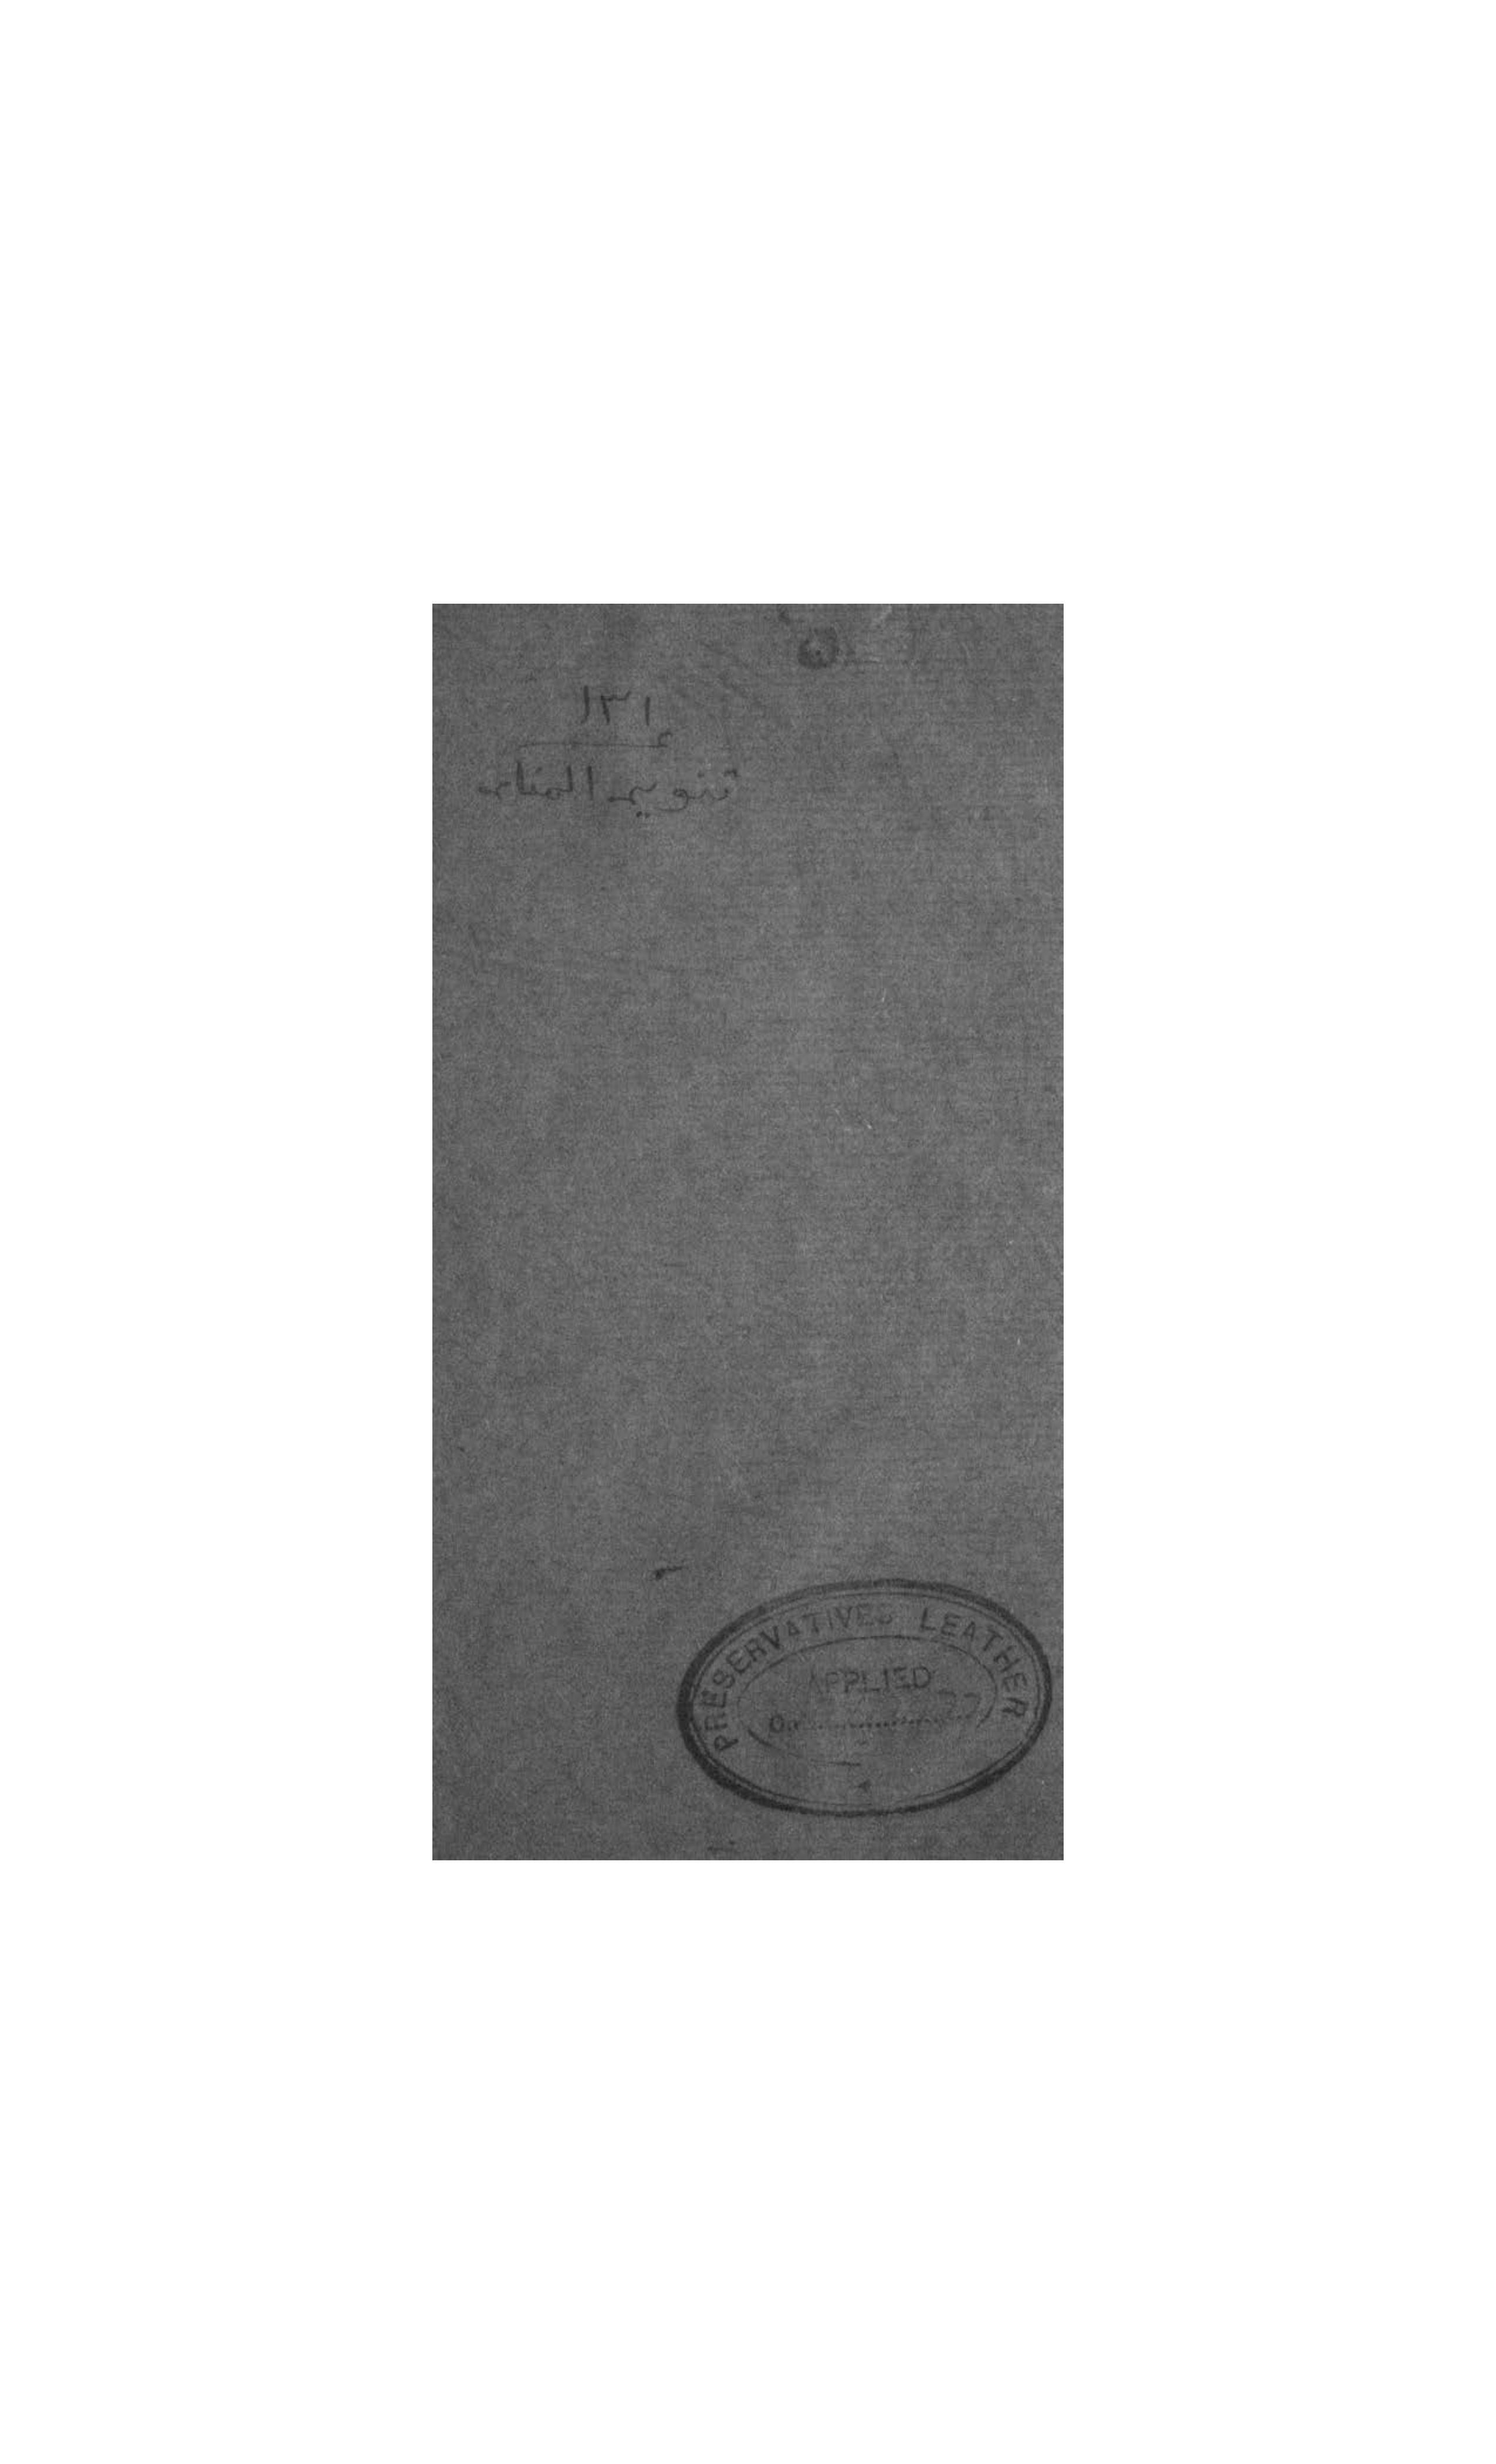 ن
١٣١
ء
تنوير المنار
PRESERVATIVES LEATHER
APPLIED
On